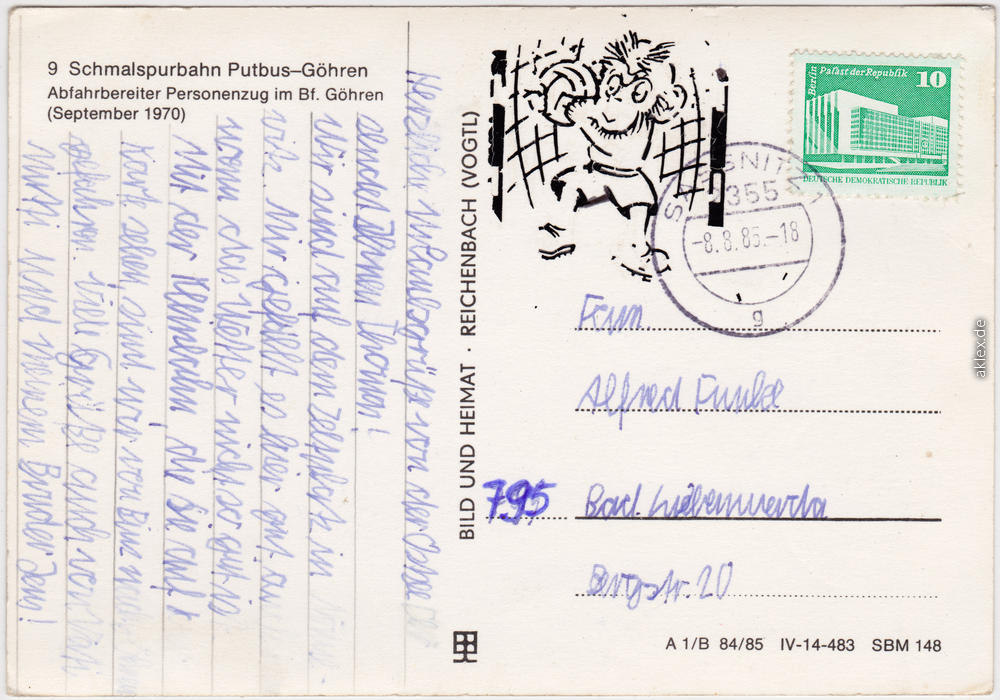 9 Schmalspurbahn Putbus–Göhren
Abfahrbereiter Personenzug im Bf. Göhren
(September 1970)
Herzliche Urlaubsgrüße von der Ostsee
sendet Ihnen
Wir sind auf dem Zeltplatz in
Mir gefällt es hier
wenn das Wetter nicht so gut is
Mit der Kleinbahn, die ihr auf d
Karte sehen sind wir von Binz nach
gefahren. Viele Grüße auch von
Mutti Vati und meinem Bruder Jens!
BILD UND HEIMAT · REICHENBACH (VOGTL)
Berlin Palast der Republik 10
DEUTSCHE DEMOKRATISCHE REPUBLIK
SASSNITZ 1
2355
-8.8.85.-18
g
Fam.
Alfred Funke
795 Bad Liebenwerda
Bergstr. 20
A 1/B 84/85 IV-14-483 SBM 148
aklex.de